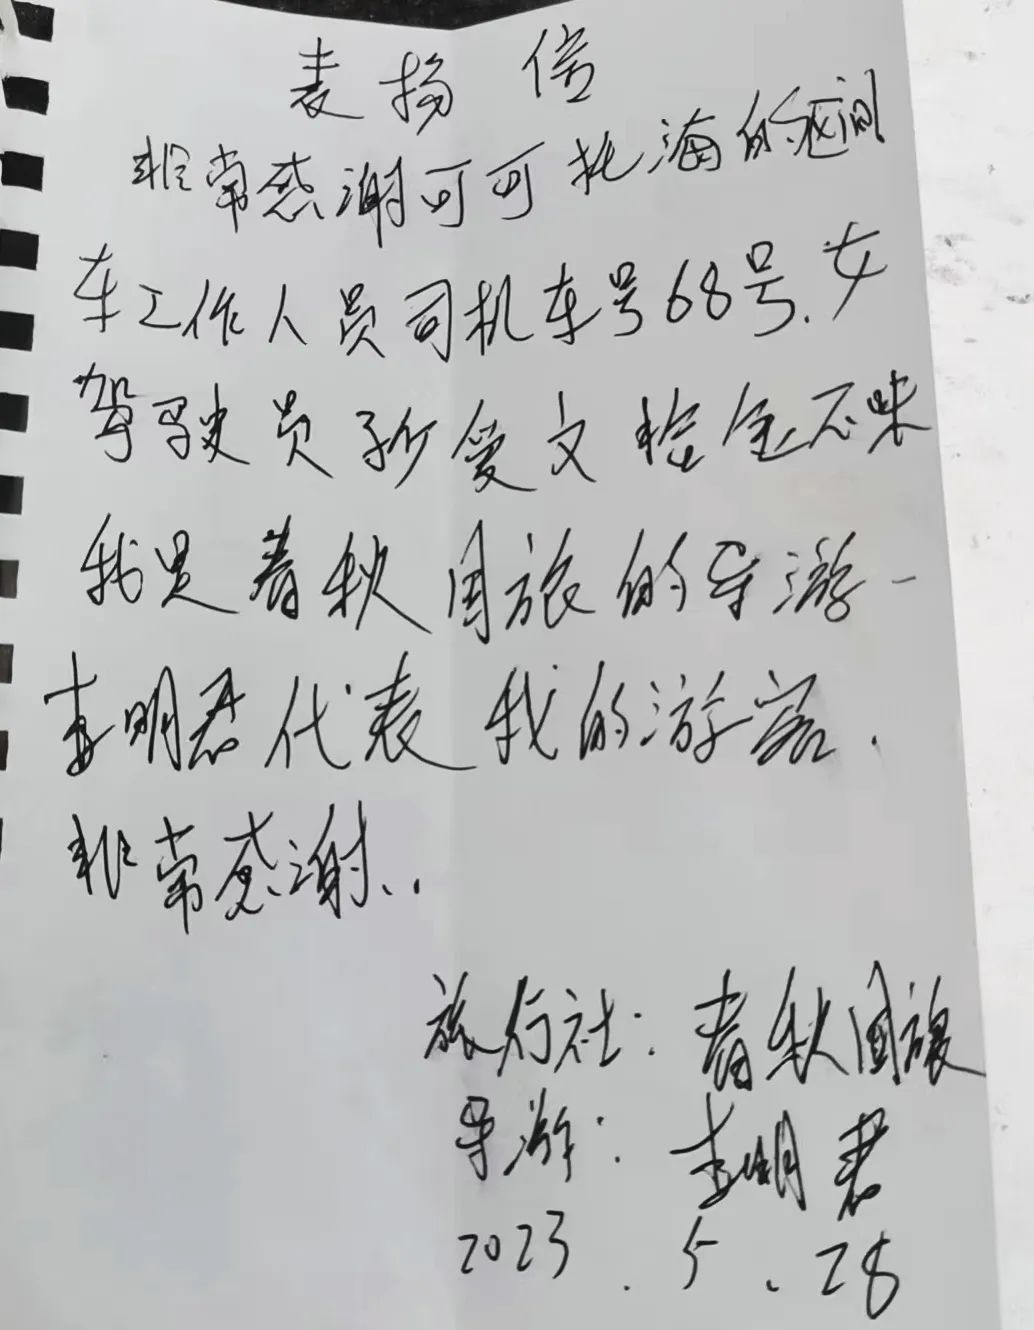 表扬信
非常感谢可可托海的区间
车工作人员司机车号68号.女
驾驶员孙爱文拾金不昧
我是春秋国旅的导游-
李明君代表我的游客.
非常感谢...
旅行社:春秋国旅
导游:李明君
2023.5.28